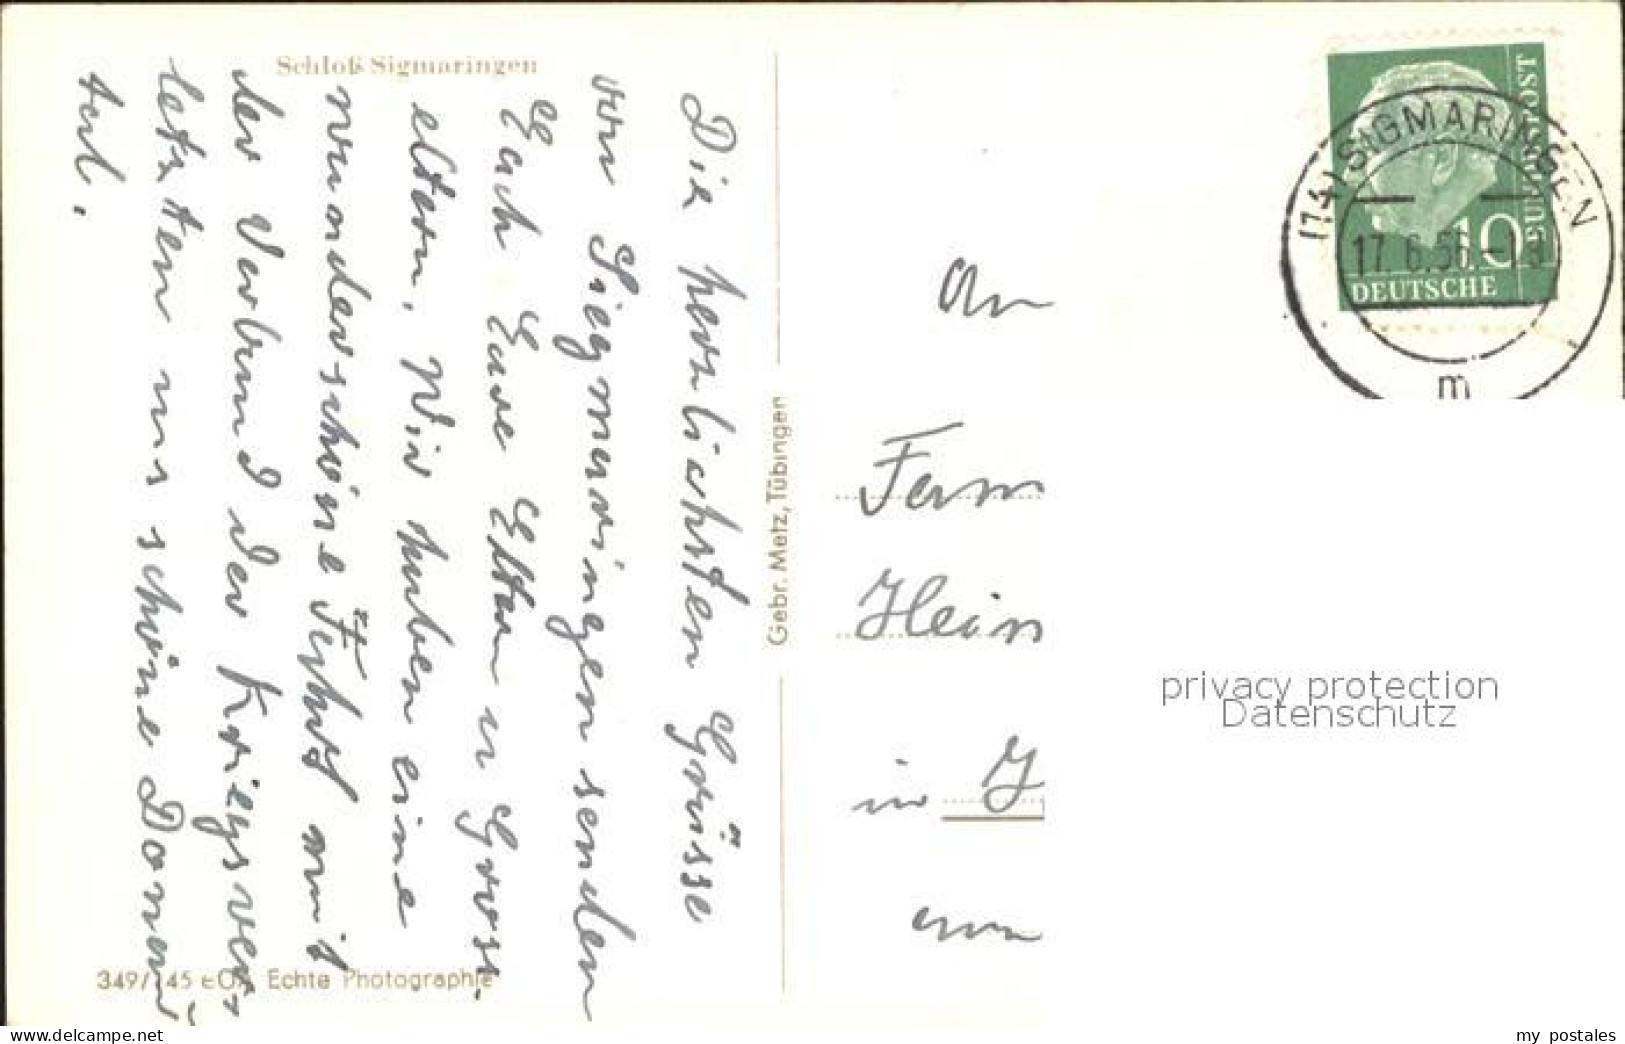 Schloß Sigmaringen
Die herzlichsten Grüsse
von Siegmaringen senden
Euch Eure Eltern u Gross-
eltern. Wir haben eine
wunderschöne Fahrt mit
der Verbund der Kriegsver-
letzten ins schöne Donau
tal.
349/ 45 Echte Photographie
Gebr. Metz, Tübingen
DEUTSCHE
BUNDESPOST
10
(14) SIGMARINGEN
17.6.56.-18
m
An
Fam
Hein
in G
privacy protection
Datenschutz
my postales
www.delcampe.net/collections/bonte